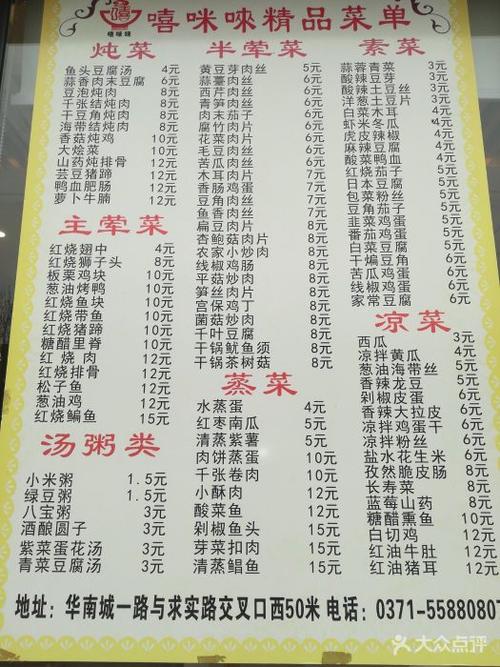 嘻咪唻
嘻咪唻精品菜单
炖菜
鱼头豆腐汤 4元
蒜香肉末豆腐 6元
豆泡炖肉 8元
千张结炖肉 8元
干豆角炖肉 8元
海带结炖肉 8元
香菇炖鸡 10元
大烩菜 10元
山药炖排骨 12元
芸豆猪蹄 12元
鸭血肥肠 12元
萝卜牛腩 12元
主荤菜
红烧翅中 4元
红烧狮子头 8元
板栗鸡块 10元
葱油烤鸭 10元
红烧鱼块 10元
红烧带鱼 10元
红烧猪蹄 10元
糖醋里脊 10元
红烧肉 12元
红烧排骨 12元
松子鱼 12元
葱油鸡 12元
红烧鳊鱼 15元
汤粥类
小米粥 1.5元
绿豆粥 1.5元
八宝粥 3元
酒酿圆子 3元
紫菜蛋花汤 3元
青菜豆腐汤 3元
半荤菜
黄豆芽肉丝 5元
蒜薹肉丝 6元
西芹肉丝 6元
青笋肉丝 6元
肉末茄子 6元
腐竹肉片 7元
花菜肉片 7元
毛豆肉丝 7元
苦瓜肉丝 7元
香肠鸡蛋 7元
豆角肉丝 7元
鱼香肉丝 7元
扁豆肉片 7元
杏鲍菇肉片 7元
农家小炒肉 8元
线椒鸡肠 8元
平菇炒肉 8元
笋丝肉片 8元
宫保鸡丁 8元
菌菇炒肉 8元
千叶豆腐 8元
干锅鱿鱼须 8元
干锅茶树菇 8元
蒸菜
水蒸蛋 4元
红枣南瓜 5元
清蒸紫薯 5元
肉饼蒸蛋 10元
千张卷肉 10元
小酥肉 12元
酸菜鱼 12元
剁椒鱼头 15元
芽菜扣肉 12元
清蒸鲳鱼 15元
素菜
蒜蓉青菜 3元
酸辣豆芽 3元
酸辣土豆丝 3元
洋葱土豆片 3元
白木耳冬瓜 4元
虾米皮冬瓜 4元
虎皮辣椒 4元
麻辣豆腐 4元
酸菜鸭血 4元
红烧冬瓜 5元
日本豆腐 5元
包菜粉丝 5元
豆角茄子 5元
韭菜鸡蛋 5元
番茄鸡蛋 5元
白菜豆腐 5元
干煸豆角 6元
苦瓜鸡蛋 6元
线椒鸡蛋 6元
家常豆腐 6元
凉菜
西瓜 3元
凉拌黄瓜 5元
葱油海带丝 5元
香辣龙豆 6元
剁椒皮蛋 6元
香辣大拉皮 6元
凉拌鸡蛋干 6元
凉拌粉丝 6元
盐水花生米 6元
孜然脆皮肠 8元
长寿菜 8元
蓝莓山药 8元
糖醋熏鱼 10元
白切鸡 12元
红油牛肚 12元
红油猪耳 12元
地址：华南城一路与求实路交叉口西50米 电话：0371-55880807
大众点评